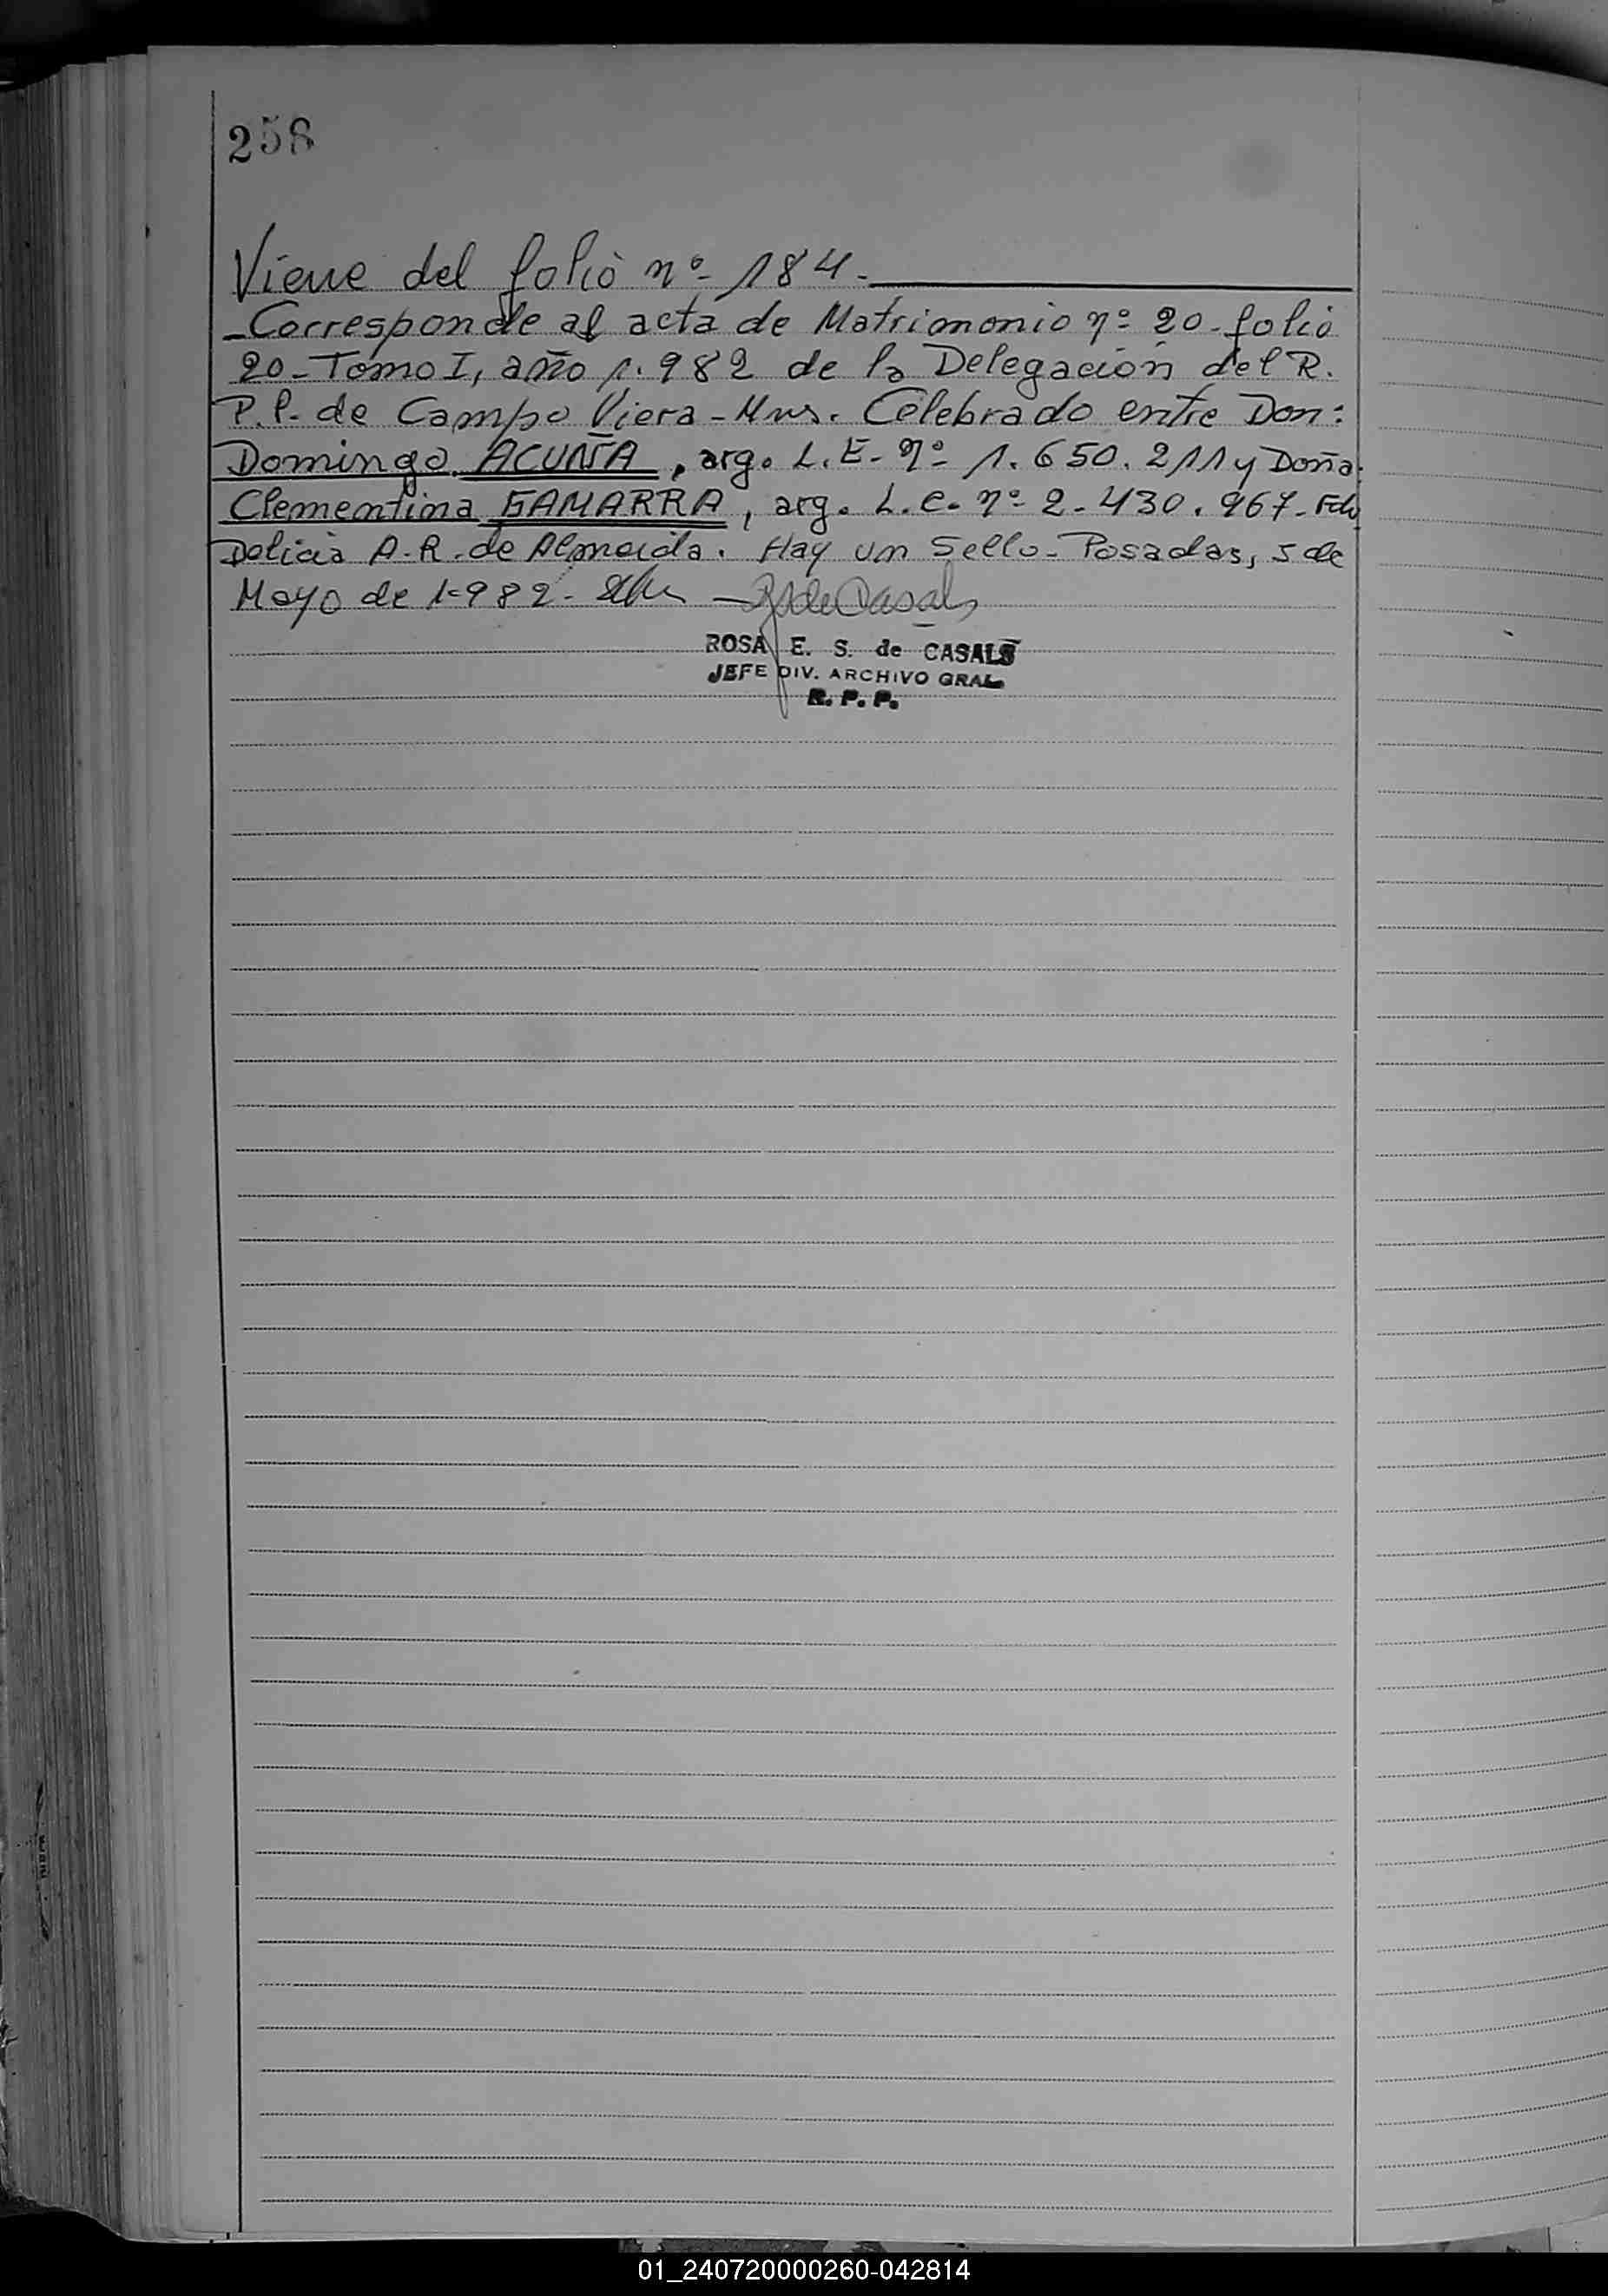 258
Viene del folio nº 184.-
-Corresponde al acta de Matrimonio nº 20-folio
20-Tomo I, año 1.982 de la Delegación del R.
P.P. de Campo Viera-Mns. Celebrado entre Don:
Domingo ACUÑA, arg. L.E-nº 1.650.211 y Doña:
Clementina GAMARRA, arg. L.C. nº 2.430.967-Fdo
Delicia A.R. de Almeida. Hay un Sello-Posadas, 5 de
Mayo de 1.982-
ROSA E. S. de CASALS
JEFE DIV. ARCHIVO GRAL
R. P. P.
01_240720000260-042814